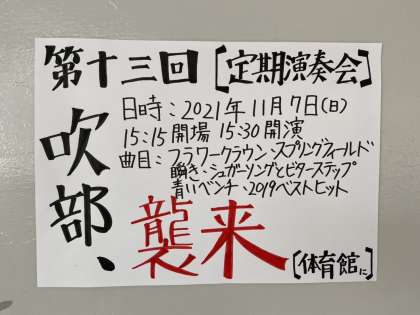 第十三回[定期演奏会]
吹部、
日時：2021年11月7日(日)
15:15開場 15:30開演
曲目：フラワークラウン・スプリングフィールド
瞬き・シュガーソングとビターステップ
青いベンチ・2019ベストヒット
襲来
[体育館に]